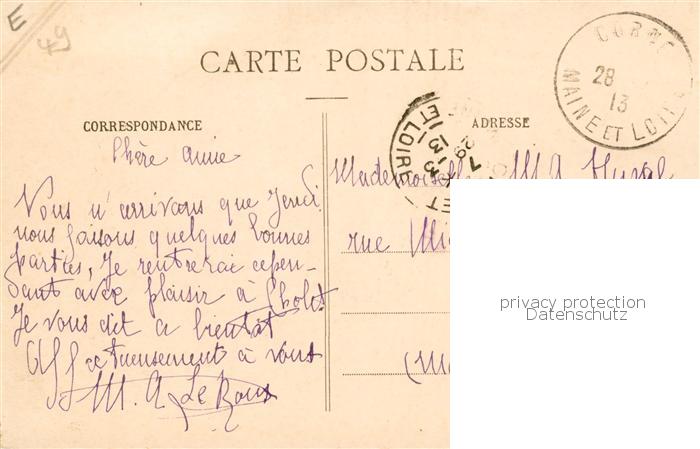 E
49
CARTE POSTALE
CORNÉ
28
13
MAINE ET LOIRE
CORRESPONDANCE
ADRESSE
ET LOIRE
Chère Amie
Mademoiselle M A
Vous n'arrivons que Jeudi
nous faisons quelques bonnes
parties, Je rentrerai cepen-
dant avec plaisir à Cholet
Je vous dit a bientôt
Affectueusement à vous
M. A. Le Roux
rue
privacy protection
Datenschutz